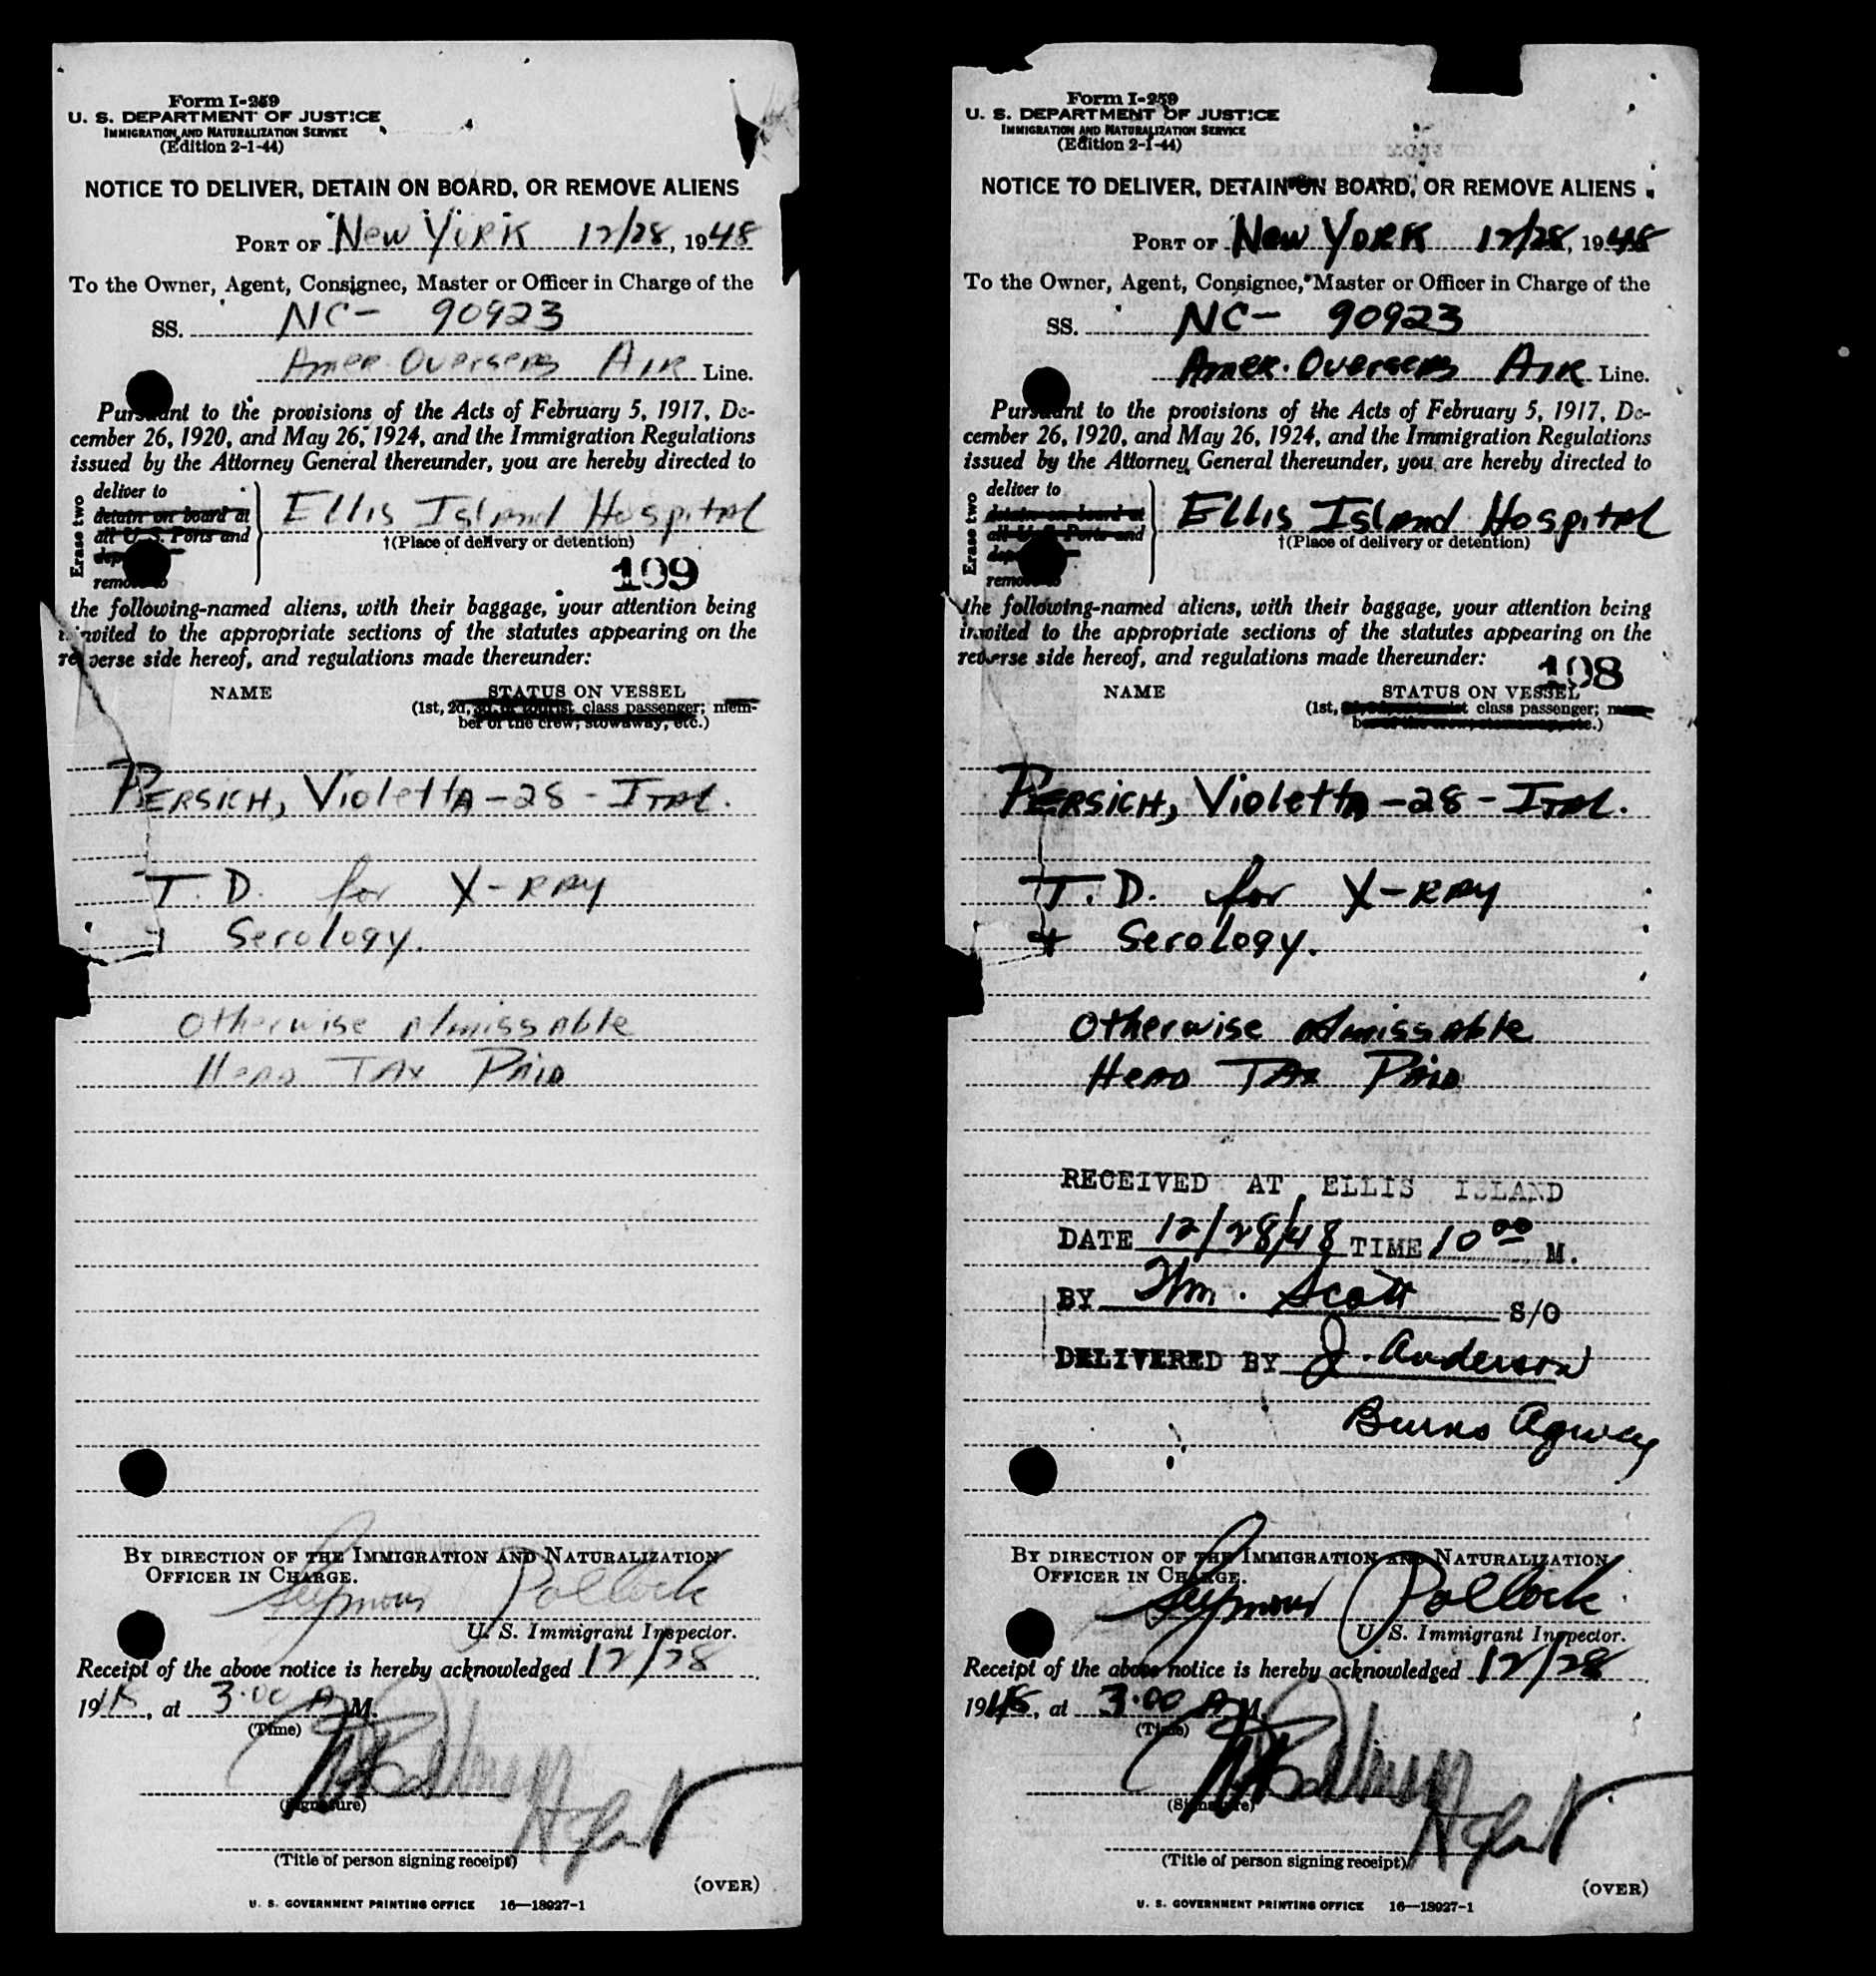 Form I-259
U. S. DEPARTMENT OF JUSTICE
IMMIGRATION AND NATURALIZATION SERVICE
(Edition 2-1-44)
NOTICE TO DELIVER, DETAIN ON BOARD, OR REMOVE ALIENS
PORT OF New York 12/28, 1948
To the Owner, Agent, Consignee, Master or Officer in Charge of the
SS. NC- 90923
Amer. Overseas Air Line.
Pursuant to the provisions of the Acts of February 5, 1917, De-
cember 26, 1920, and May 26, 1924, and the Immigration Regulations
issued by the Attorney General thereunder, you are hereby directed to
Erase two
deliver to
detain on board at
all U. S. Ports and
remove to
Ellis Island Hospital
†(Place of delivery or detention)
109
the following-named aliens, with their baggage, your attention being
invited to the appropriate sections of the statutes appearing on the
reverse side hereof, and regulations made thereunder:
NAME STATUS ON VESSEL
(1st, 2d, 3d, or tourist class passenger; mem-
ber of the crew; stowaway, etc.)
Persich, Violetta - 28 - Ital.
T. D. for X-Ray
+ Serology.
Otherwise Admissable
Head Tax Paid
BY DIRECTION OF THE IMMIGRATION AND NATURALIZATION
OFFICER IN CHARGE.
Seymour Pollock
U. S. Immigrant Inspector.
Receipt of the above notice is hereby acknowledged 12/28
1948, at 3:00 A M.
(Time)
(Signature)
Agent
(Title of person signing receipt)
(OVER)
U. S. GOVERNMENT PRINTING OFFICE 16—18927-1
Form I-259
U. S. DEPARTMENT OF JUSTICE
IMMIGRATION AND NATURALIZATION SERVICE
(Edition 2-1-44)
NOTICE TO DELIVER, DETAIN ON BOARD, OR REMOVE ALIENS
PORT OF New York 12/28, 1948
To the Owner, Agent, Consignee, Master or Officer in Charge of the
SS. NC- 90923
Amer. Overseas Air Line.
Pursuant to the provisions of the Acts of February 5, 1917, De-
cember 26, 1920, and May 26, 1924, and the Immigration Regulations
issued by the Attorney General thereunder, you are hereby directed to
Erase two
deliver to
detain on board at
all U. S. Ports and
remove to
Ellis Island Hospital
†(Place of delivery or detention)
the following-named aliens, with their baggage, your attention being
invited to the appropriate sections of the statutes appearing on the
reverse side hereof, and regulations made thereunder:
108
NAME STATUS ON VESSEL
(1st, class passenger;
Persich, Violetta - 28 - Ital.
T. D. for X-Ray
+ Serology.
Otherwise Admissable
Head Tax Paid
RECEIVED AT ELLIS ISLAND
DATE 12/28/48 TIME 10 00 M.
BY Wm. Scott S/O
DELIVERED BY J. Anderson
Burns Agency
BY DIRECTION OF THE IMMIGRATION AND NATURALIZATION
OFFICER IN CHARGE.
Seymour Pollock
U. S. Immigrant Inspector.
Receipt of the above notice is hereby acknowledged 12/28
1948, at 3:00 A M.
(Time)
(Signature)
Agent
(Title of person signing receipt)
(OVER)
U. S. GOVERNMENT PRINTING OFFICE 16—18927-1